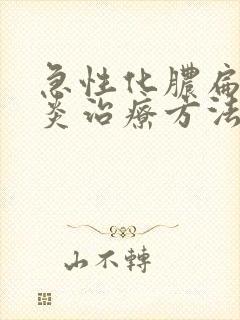 急性化膿扁
炎治療方法
山不轉